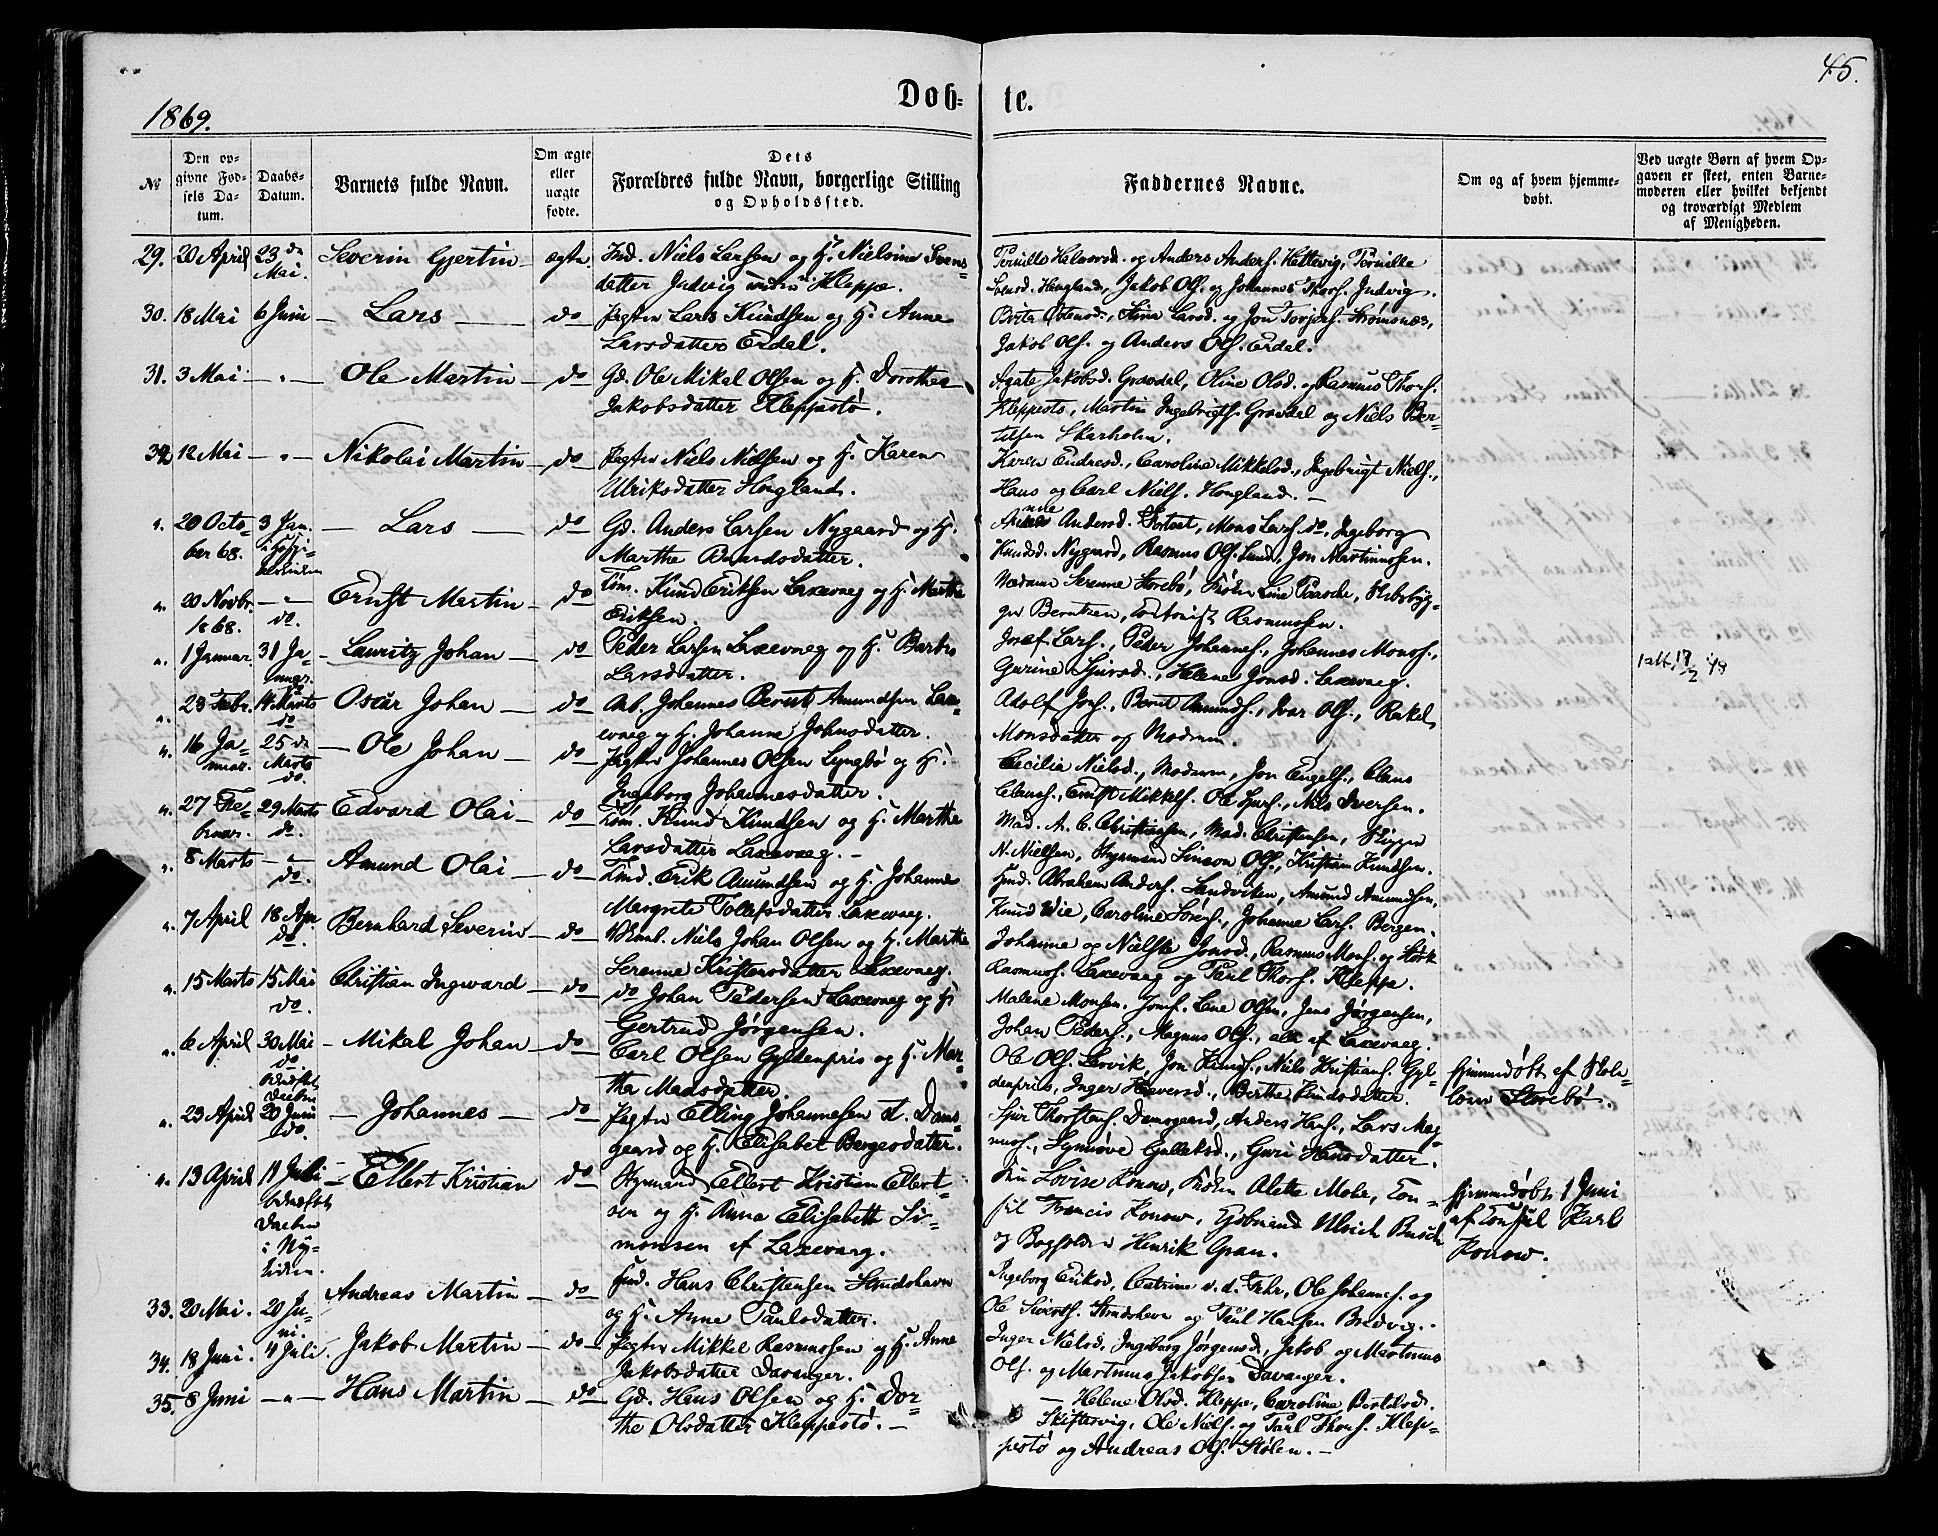 45.
1869.
Døb- te.
№
Den opgivne Fødsels Datum.
Daabs-Datum.
Barnets fulde Navn.
Om ægte eller uægte fødte.
Dets Forældres fulde Navn, borgerlige Stilling og Opholdssted.
Faddernes Navne.
Om og af hvem hjemmedøbt.
Ved uægte Børn af hvem Opgaven er skeet, enten Barnemoderen eller hvilket bekjendt og troværdigt Medlem af Menigheden.
29. 20 April 23 de Mai. Severin Gjertin ægte.
Ind. Niels Larsen og H. Nielsine Svens-
datter Jadvig Kleppe.
Pernille Halvorsd. og Anders Anders. Hettevig, Pernille
Svensd. Hengland, Jakob Ols. og Johannes Thors. Judvig.
30. 18 Mai 6 Juni Lars do
Pagter Lars Knudsen og H. Anne
Larsdatter Erdal.
Brita Stensd., Stine Larsd. og Jon Torjers. Strømsnæs,
Jakob Ols. og Anders Ols. Erdal.
31. 3 Mai — " — Ole Martin do
Gd. Ole Mikal Olsen og H. Dorothea
Jakobsdatter Kleppestø.
Agate Jakobsd. Gravdal, Oline Olsd. og Rasmus Thors.
Kleppestø, Martin Ingebrigts. Gravdal og Niels Ber-
telsen Skarholm.
32. 12 Mai — " — Nikolai Martin do
Pagter Niels Nielsen og H. Karen
Ulriksdatter Hougland.
Karen Endresd., Caroline Mikkelsd., Ingebrigt Niels.,
Hans og Carl Niels. Hougland. —
". 20 Octo-
ber 68. 3 Jan. Lars do
Gd. Anders Larsen Nygaard og H.
Marthe Baardsdatter.
Andersd. Mons Lars. do, Ingeborg
Knudsd. Nygaard, Rasmus Ols. Lund, Jon Martinusen.
". 20 Novbr.
1868. — " —
do. Ernst Martin do
Tøm. Knud Eriksen Laxevaag og H. Marthe
Eriksen.
Madame Serenne Storebø, Frøken Line Skibsbyg-
ger Berntzen, Rasmussen.
". 1 Januar. 31 Ja-
nuar. Lauritz Johan do
Peder Larsen Laxevaag og H. Barbro
Larsdatter.
Josef Lars., Peder Johannes., Johannes Mons.,
Gurine Sjursd., Helene Jonsd. Laxevaag.
". 23 Febr. 14 Marts
do Oscar Johan do
Arb. Johannes Bernt Amundsen Lax-
evaag og H. Johanne Johnsdatter.
Adolf Jons., Bernt Amunds., Ivar Ols., Rakel
Monsdatter og Modrem.
". 16 Ja-
nuar. 25 de
Marts
do. Ole Johan do
Pagter Johannes Olsen Lyngbø og H.
Ingeborg Johannesdatter.
Cecilia Nielsd., Modrem, Jon Engels., Claus
Claus., Ernst Mikkels. Ole Sjurs., Nils Iversen.
". 27 Fe-
bruar. 29 Marts
do. Edvard Olai do
Tøm. Knud Knudsen og H. Marthe
Larsdatter Laxevaag. —
Mad. A. C. Christiansen, Mad. Christensen, Skipper
N. Nielsen, Styrmand Simon Ols., Kristian Knudsen.
". 8 Marts — " —
do. Amund Olai do
Erik Amundsen og H. Johanne
Margrete Tollefsdatter Laxevaag.
Abraham Anders. Sandviken, Amund Amundsen,
Knud Wie, Caroline Sørens., Johanne Lars. Bergen.
". 7 April 18 Apr.
do. Bernhard Severin do
Niels Johan Olsen og H. Marthe
Serenne Kristensdatter Laxevaag.
Johanne og Nielske Jonsd., Rasmus Mons. og Størk
Rasmus. Laxevaag og Paul Thors. Kleppe.
". 15 Marts 15 Mai
do. Christian Ingvard do
do Johan Pedersen Laxevaag og H.
Gertrud Jørgensen.
Malene Monsen. Jomf. Lene Olsen, Jens Jørgensen,
Johan Peders., Magnus Ols., alle af Laxevaag.
". 6 April 30 Mai
do Mikal Johan do
Carl Olsen Gyldenpris og H. Mar-
tha Madsdatter.
Ole Ols. Lervik, Jon Knuds., Niels Kristians. Gyl-
denpris, Inger Haversd., Berthe
hjemmedøbt af Skole-
lærer Storebø.
". 23 April 20 Juni
do. Johannes do
Pagter Elling Johannesen St. Dams-
gaard og H. Elisabet Børgesdatter.
Sjur Thorstens. Damsgaard, Anders Hans., Lars Mag-
nus., Synnøve Gulleksd., Guri Hansdatter.
". 13 April 11 Juli Ellert Kristian do
Styrmand Ellert Kristian Ellert-
sen og H. Anna Elisabeth Si-
monsen af Laxevaag.
Fru Lovise Konow, Frøken Alette Mohr, Con-
sul Francis Konow, Kjøbmand Ulrich Busch
og Bogholder Henrik Gran.
hjemmedøbt 1 Juni
af Consul Karl
Konow.
33. 20 Mai. 20 Ju-
ni. Andreas Martin do
Hans Christensen Strudshavn
og H. Anne Paulsdatter.
Ingeborg Eriksd., Catrine v. d. Fehr, Ole Johannes. og
Ole Siverts. Strudshavn og Paul Hansen Bredvig.
34. 18 Juni. 4 Juli. Jakob Martin do
Pagter Mikkel Rasmussen og H. Anne
Jakobsdatter Davanger.
Inger Nielsd., Ingeborg Jørgensd., Jakob og Martinus
Ols. og Martinus Jakobsen Davanger.
35. 8 Juni — " — Hans Martin do
Gd. Hans Olsen og H. Dor-
the Olsdatter Kleppestø. —
— Helene Olsd. Kleppe, Caroline Bertelsd.
Skiftesvig, Ole Niels. og Paul Thors. Klep-
pestø og Andreas Ols. Stølen. —